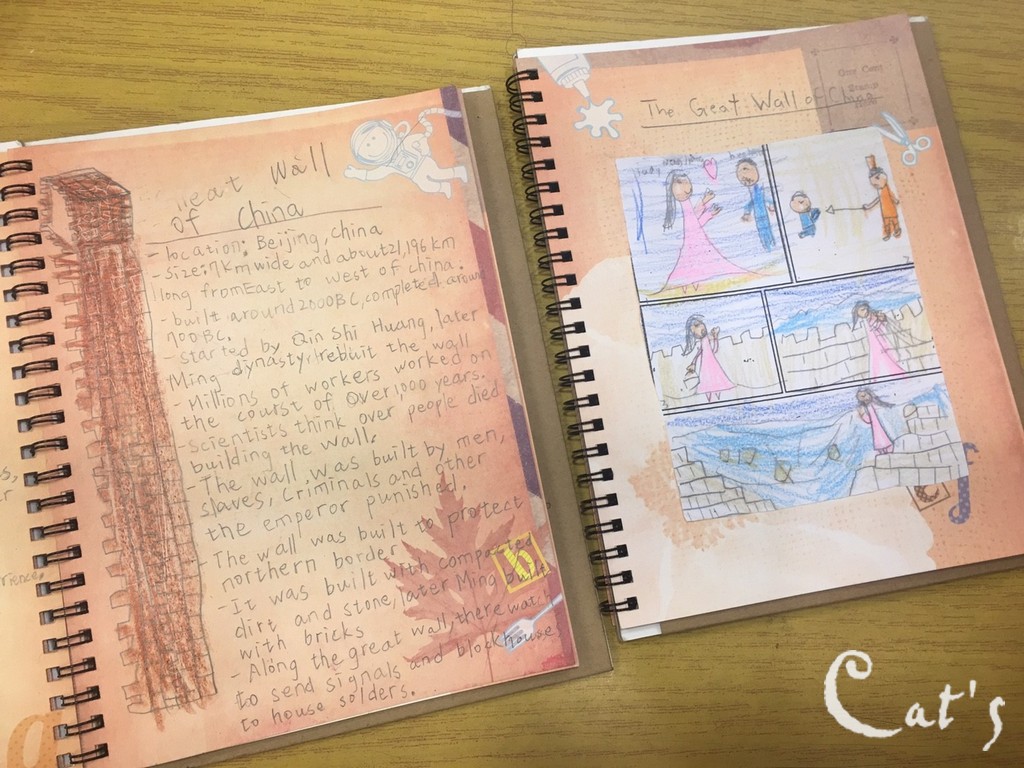 Great Wall
of China
- location: Beijing, China
- Size: 7km wide and about 21,196 km
long from East to west of china.
- built around 2000BC, completed around
700BC.
- started by Qin Shi Huang, later
Ming dynasty rebuit the wall
- Millions of workers worked on
the courst of Over 1,000 years.
- Scientists think over people died
building the wall.
- The wall was built by men,
slaves, Criminals and other
the emperor punished.
- The wall was built to protect
northern border
- It was built with compacted
dirt and stone, later Ming built
with bricks
- Along the great wall, there watch
to send signals and blockhouse
to house solders.
rience,
The Great Wall of China
One Cent
Stamp
2
Cat's